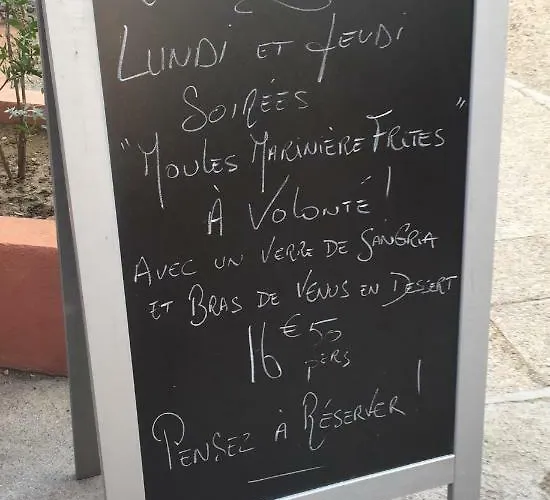 LUNDI ET JEUDI
SOIRÉES
"MOULES MARINIÈRE FRITES"
À VOLONTÉ !
AVEC UN VERRE DE SANGRIA
ET BRAS DE VENUS EN DESSERT
16 € 50
pers
PENSEZ À RÉSERVER !